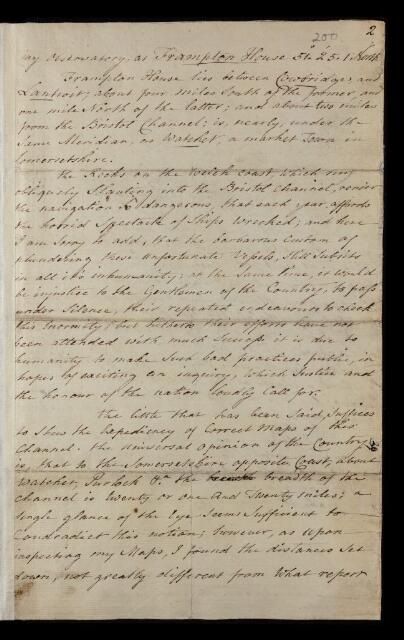 200
2
my Observatory, at Frampton House 51° 25' 1" North.
Frampton House lies between Cowbridge, and
Lantwit; about four miles South of the former, and
one mile North of the latter; and about two miles
from the Bristol Channel; is, nearly, under the
same Meridian, as Watchet, a market Town in
Somersetshire.
The Rocks on the Welch coast, which run
obliquely Slanting into the Bristol Channel, render
the navigation so dangerous, that each year, affords
the horrid Spectacle of Ships wrecked; and here
I am Sorry to add, that the barbarous Custom of
plundering these unfortunate Vessels, Still Subsists
in all its inhumanity; at the Same time, it would
be injustice to the Gentlemen of the Country, to pass
under Silence, their repeated endeavours to check
this Enormity; but hitherto their efforts have not
been attended with much Success it is due to
humanity to make Such bad practices public, in
hopes by exciting an inquiry, which Justice and
the honour of the nation loudly Call for.
The little that has been Said, Suffices
to Shew the Expediency of Correct Maps of this
Channel. The universal opinion of the Country
is that to the Somersetshire opposite Coast, about
Watchet, Purlock &c. the breadth of the
channel is twenty or one And Twenty miles; a
Single glance of the Eye Seems Sufficient to
Contradict this notion; however, as upon
inspecting my Maps, I found the distances Set
down, not greatly different from What report